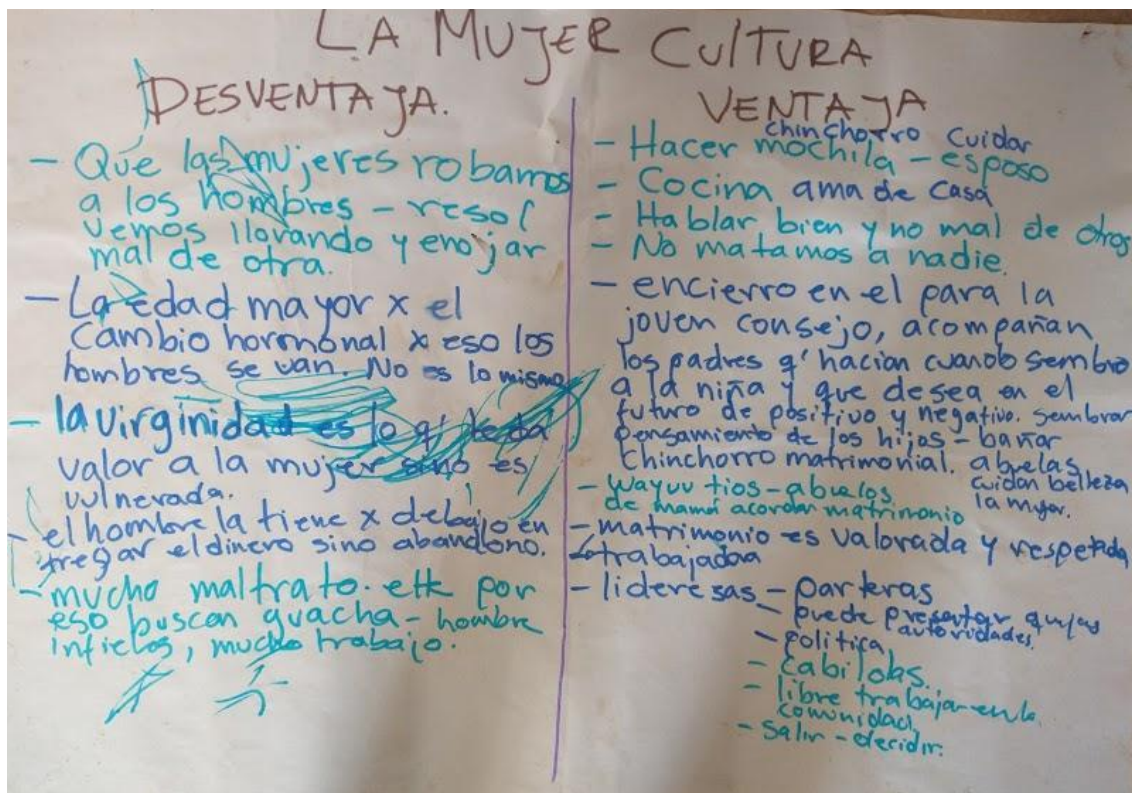 LA MUJER CULTURA
DESVENTAJA.
- Que las mujeres robamos
a los hombres - resol
vemos llorando y enojar
mal de otra.
- La edad mayor x el
Cambio hormonal x eso los
hombres se van. No es lo mismo
- la virginidad es lo q' le da
valor a la mujer sino es
vulnerada.
- el hombre la tiene x debajo en
tregar el dinero sino abandono.
- mucho maltrato. por
eso buscan guacha - hombre
infieles, mucho trabajo.
VENTAJA
chinchorro cuidar
- Hacer mochila - esposo
- Cocina ama de casa
- Hablar bien y no mal de otros
- No matamos a nadie.
- encierro en el para la
joven consejo, acompañan
los padres q' hacian cuando sembro
a la niña y que desea en el
futuro de positivo y negativo. sembrar
pensamiento de los hijos - bañar
Chinchorro matrimonial. abuelas
cuidan belleza
la mujer.
- wayuu tios - abuelos
de mamá acordar matrimonio
- matrimonio es valorada y respetada
trabajadora
- lideresas - parteras
- puede presentar quejas
autoridades.
- politica
- Cabildos.
- libre trabajar en la
comunidad
- salir - decidir.